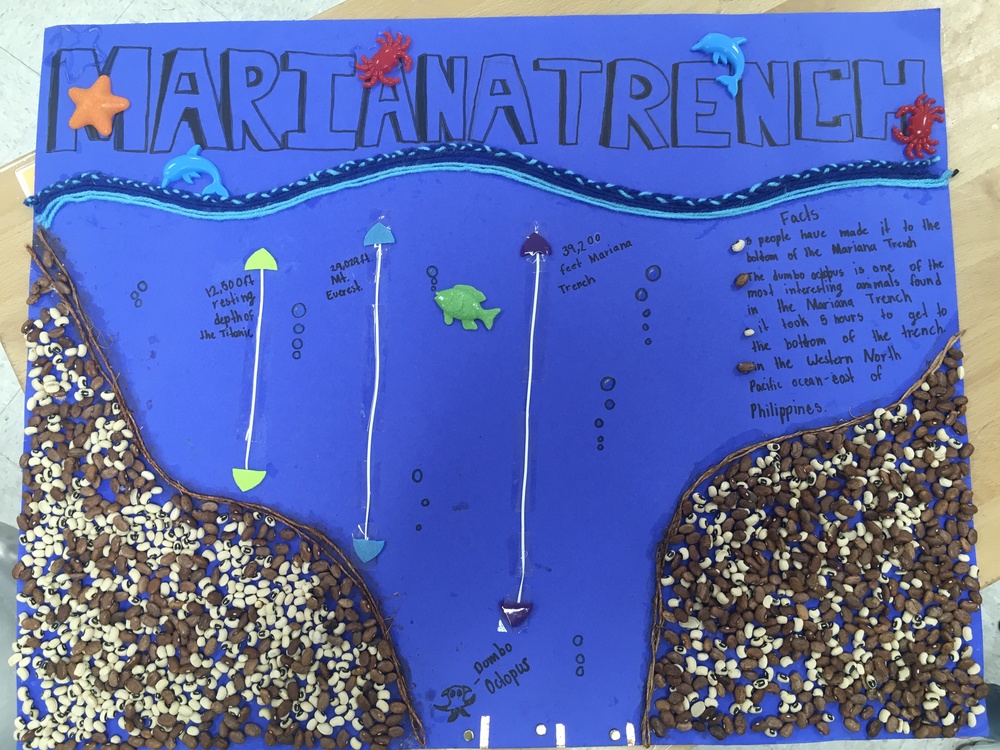 MARIANA TRENCH
12,500ft
resting
depth of
the Titanic
29,029ft
Mt.
Everest
39,200
feet Mariana
Trench
Facts
people have made it to the
bottom of the Mariana Trench
The dumbo octopus is one of the
most interesting animals found
in the Mariana Trench
it took 5 hours to get to
the bottom of the trench.
in the Western North
Pacific ocean-east of
Philippines.
Dombo
Octopus